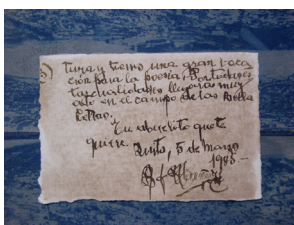 tura y tienes una gran voca
ción para la poesía. Por todas
llegarás muy
alto en el campo de las Bella
Letras.
Tu abuelito que te
quiere.
Quito, 5 de marzo
1985 -